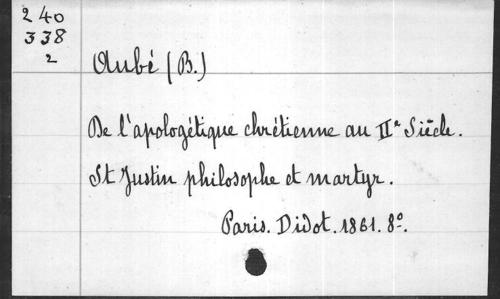 240
338
2
Aubé (B.)
De l'apologétique chrétienne au IIe Siècle.
St Justin philosophe et martyr.
Paris. Didot. 1861. 8o.